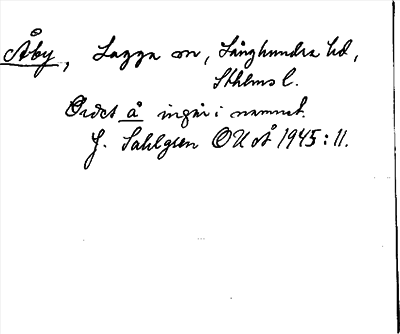 Åby, Lagga sn, Långhundra hd,
Sthlms l.
Ordet å ingår i namnet.
J. Sahlgren OUoÅ 1945:11.